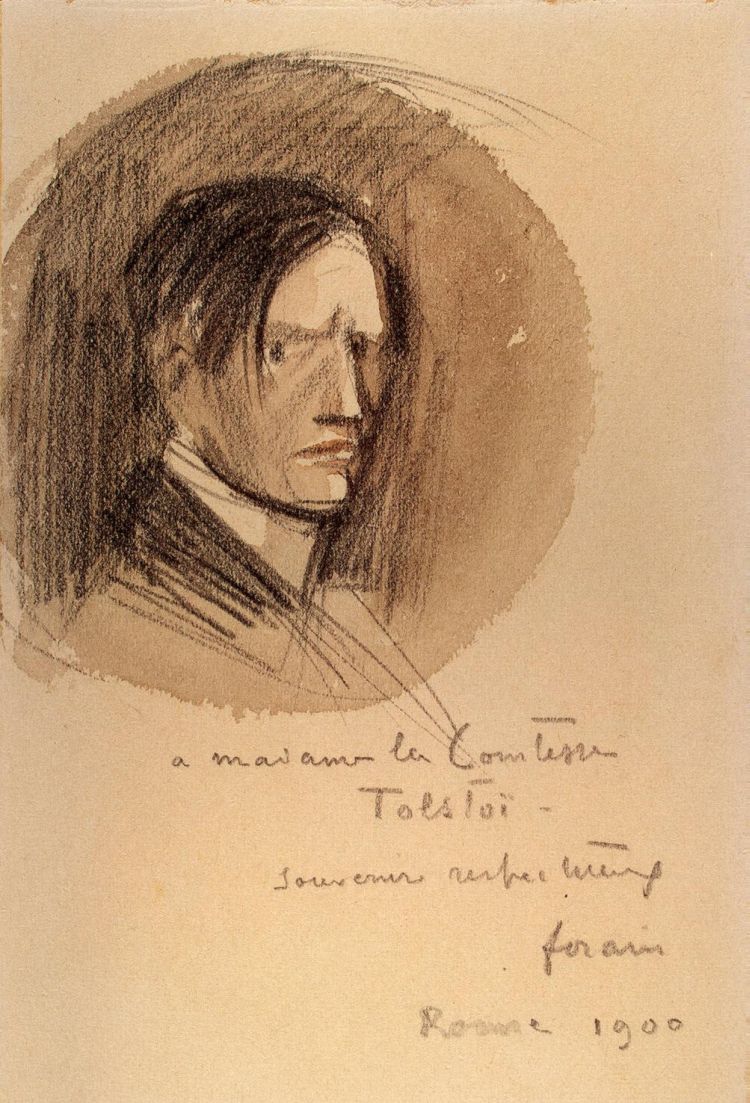 a madame la Comtesse
Tolstoï -
souvenir respectueux
forain
Rome 1900